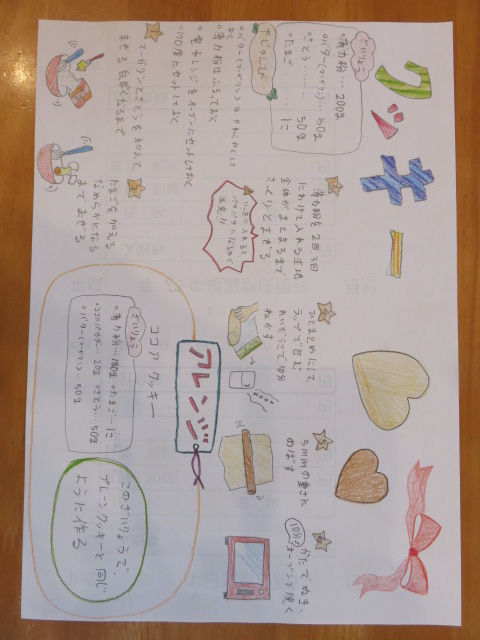 クッキー
ざいりょう
°薄力粉… 200g
°バター(マーガリン)… 50g
°さとう…… 50g
°たまご…… 1こ
下じゅんび
°バター(マーガリン)はやわらかくして
おく
°薄力粉はふるっておく
°電子レンジをオーブンにセットしておく
1
マーガリンとさとうを加えて
まぜる 白っぽくなるまで
2
たまごを加える
なめらかになる
までまぜる
3
薄力粉を2回、3回
にわけて入れる 生地
全体がまとまるまで
さっくりとまぜる
いっきに入れると
パサパサになるので
注意!!
4
ひとまとめにして、
ラップで包む
れいぞうこで30分
ねかす
5
5mmの厚さに
のばす
6
かたでぬき、
オーブンで焼く
アレンジ
ココア クッキー
ざいりょう
°薄力粉…180g °たまご…1こ
°ココアパウダー… 20g °さとう… 50g
°バター(マーガリン)… 50g
このざいりょうで、
プレーンクッキーと同じ
ように作る